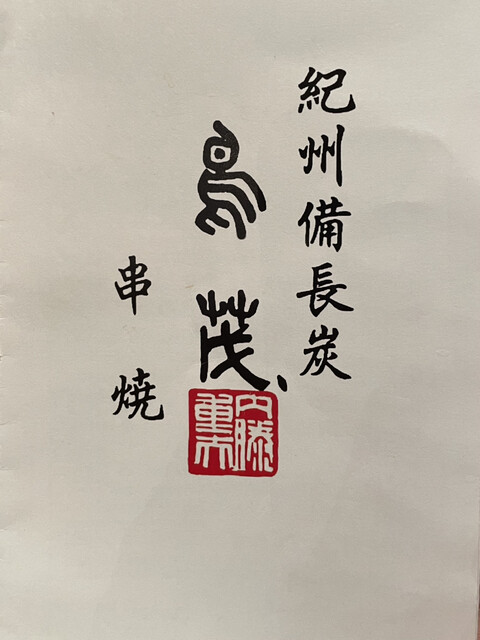 紀州備長炭
鳥茂
串焼
内藤
重